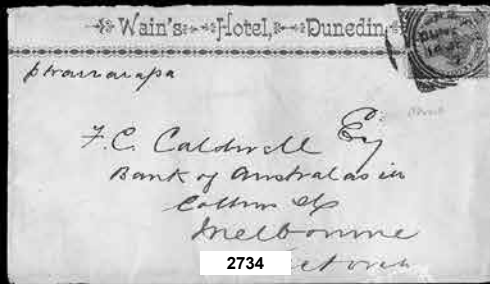 Wain's Hotel, Dunedin.
p Wararapa
F. C. Caldwell Esq
Bank of Australasia
Collins St
Melbourne
2734